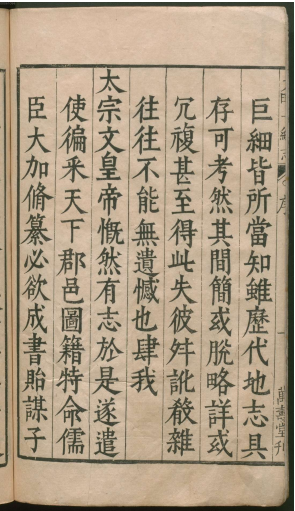 巨細皆所當知雖歷代地志具
存可考然其間簡或脫略詳或
冗複甚至得此失彼舛訛殽雜
往往不能無遺憾也肆我
太宗文皇帝慨然有志於是遂遣
使徧采天下郡邑圖籍特命儒
臣大加脩纂必欲成書貽謀子
萬壽堂刊